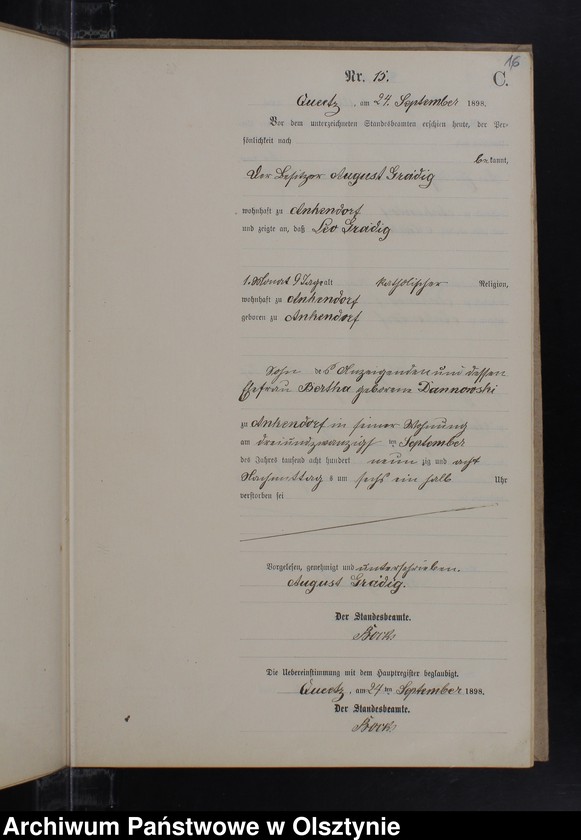 16
Nr. 15.
C.
Queetz, am 24. September 1898.
Vor dem unterzeichneten Standesbeamten erschien heute, der Per-
sönlichkeit nach
bekannt,
der Besitzer August Grädig
wohnhaft zu Ankendorf
und zeigte an, daß Leo Grädig
1 Monat 9 Tage alt katholischer Religion,
wohnhaft zu Ankendorf
geboren zu Ankendorf
Sohn des Anzeigenden und dessen
Ehefrau Bertha geborene Dannowski
zu Ankendorf in seiner Wohnung
am dreiundzwanzigsten September
des Jahres tausend acht hundert neunzig und acht
Nachmittags um sechs ein halb Uhr
verstorben sei
Vorgelesen, genehmigt und unterschrieben.
August Grädig.
Der Standesbeamte.
Die Uebereinstimmung mit dem Hauptregister beglaubigt.
Queetz, am 24ten September 1898.
Der Standesbeamte.
Archiwum Państwowe w Olsztynie